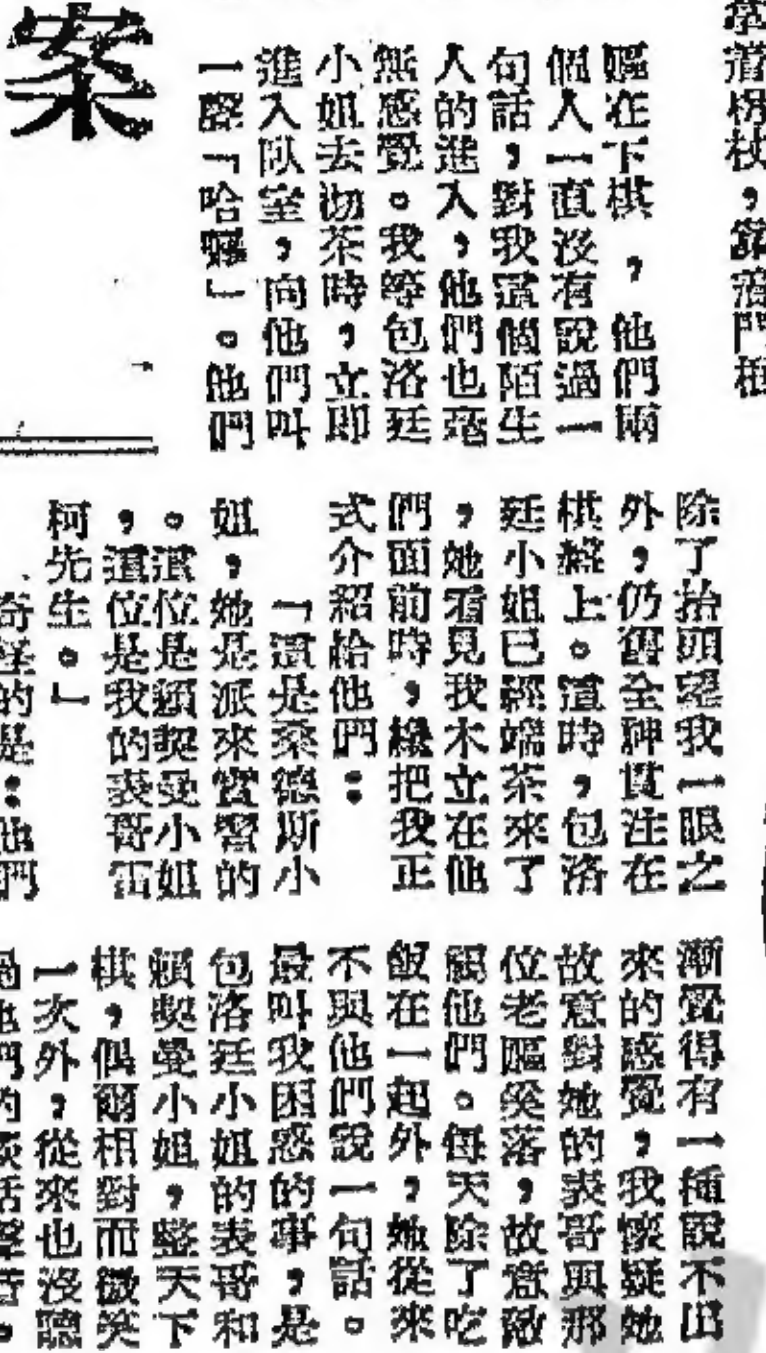 案
拿着枴杖，靠着門框
嫗在下棋，他們兩
個人一直沒有說過一
句話，對我這個陌生
人的進入，他們也毫
無感覺。我等包洛廷
小姐去沏茶時，立即
進入臥室，向他們叫
一聲「哈囉」。他們
除了抬頭望我一眼之
外，仍舊全神貫注在
棋盤上。這時，包洛
廷小姐已經端茶來了
，她看見我木立在他
們面前時，纔把我正
式介紹給他們：
「這是萊德斯小
姐，她是派來實習的
。這位是賴契曼小姐
，這位是我的表哥雷
柯先生。」
奇怪的是：他們
漸覺得有一種說不出
來的感覺，我懷疑她
故意對她的表哥與那
位老嫗奚落，故意敵
視他們。每天除了吃
飯在一起外，她從來
不與他們說一句話。
最叫我困惑的事，是
包洛廷小姐的表哥和
賴契曼小姐，整天下
棋，偶爾相對而微笑
一次外，從來也沒聽
過他們的談話聲音。